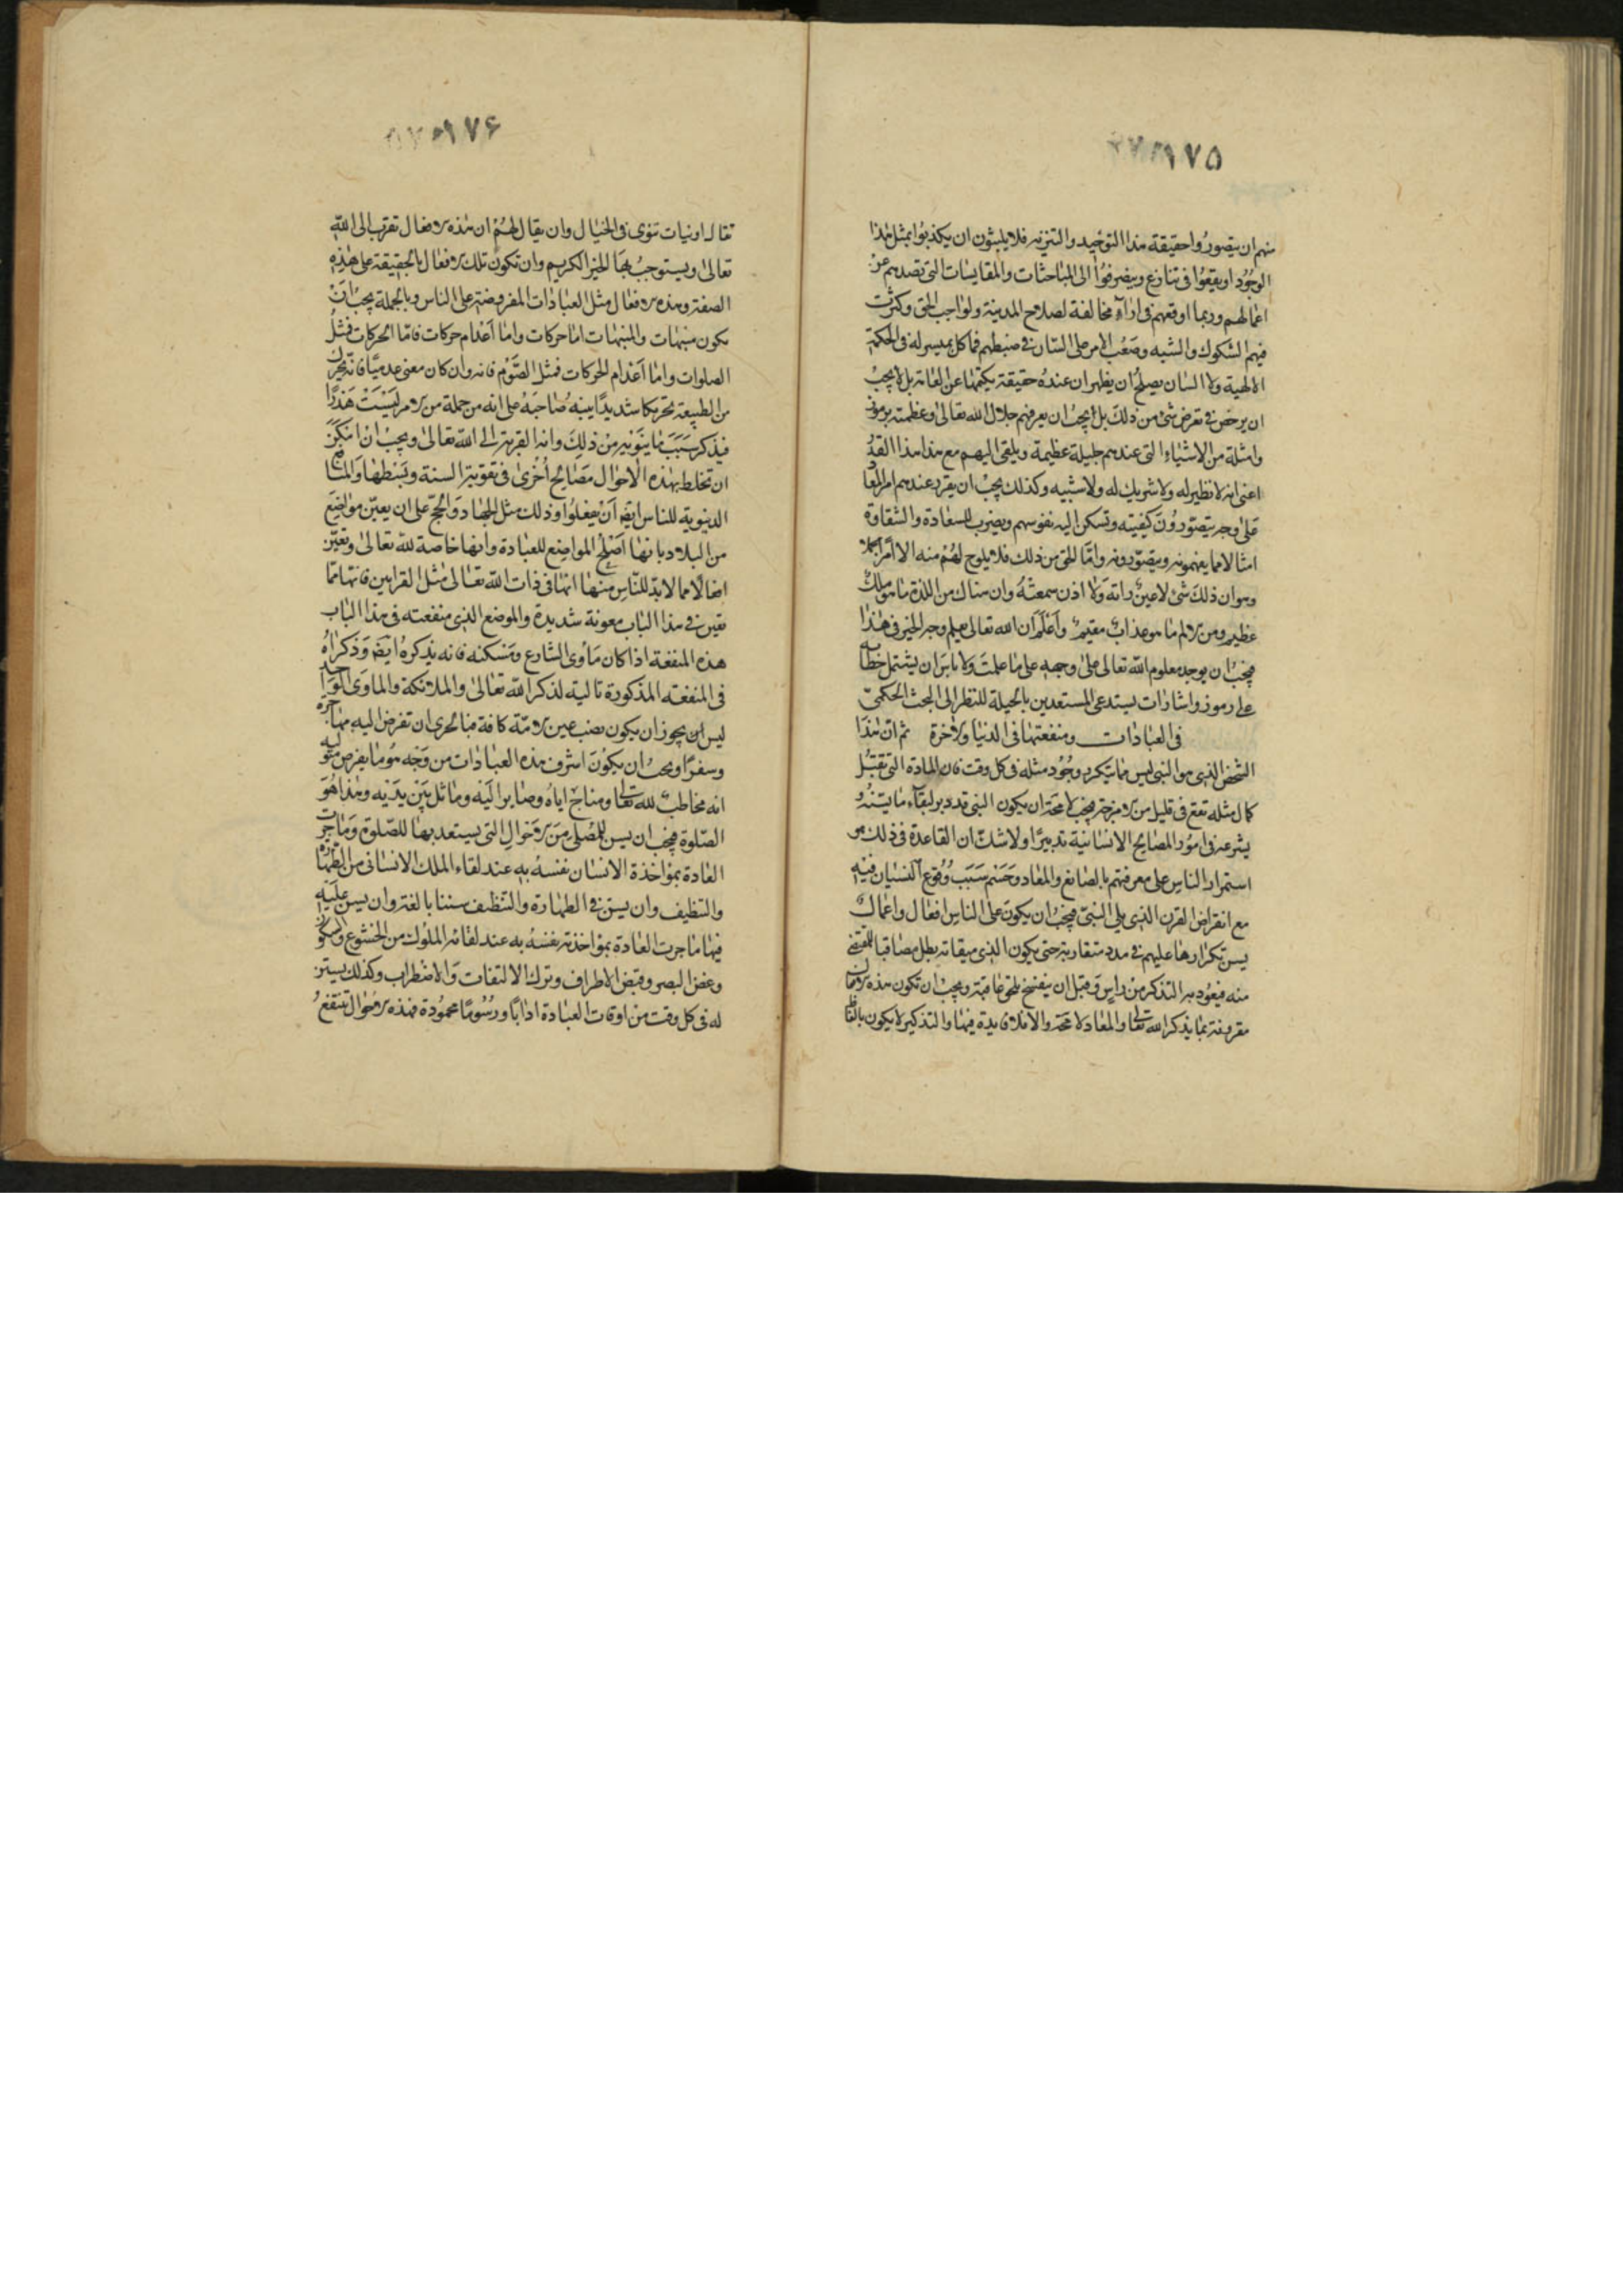 ۱۷۵
منهم ان يتصوروا حقيقة هذا التوحيد والتنزيه فلا يلبثون ان يكذبوا بمثل هذا
الوجود او يقعوا فى تنازع وينصرفوا الى المباحثات والمقايسات التى تصدهم عن
اعمالهم وربما اوقعهم فى اراء مخالفة لصلاح المدينة ولواجب الحق وكثرت
فيهم الشكوك والشبه وصعب الامر على السان فى ضبطهم فما كل بميسر له فى الحكمة
الالهية ولا السان يصلح ان يظهر ان عنده حقيقة يكتمها عن العامة بل لا يجب
ان يرخص فى تعرض شئ من ذلك بل يجب ان يعرفهم جلال الله تعالى وعظمته برموز
وامثلة من الاشياء التى عندهم جليلة عظيمة ويلقى اليهم مع هذا هذا القدر
اعنى انه لا نظير له ولا شريك له ولا شبيه وكذلك يجب ان يقرر عندهم امر المعاد
على وجه يتصورون كيفيته وتسكن اليه نفوسهم ويضرب للسعادة والشقاوة
امثالا مما يفهمونه ويتصورونه واما الحق من ذلك فلا يلوح لهم منه الا امرا مجملا
وهو ان ذلك شئ لا عين راته ولا اذن سمعته وان هناك من اللذة ما هو ملك
عظيم ومن الالم ما هو عذاب مقيم واعلم ان الله تعالى يعلم وجه الخير فى هذا
فيجب ان يوجد معلوم الله تعالى على وجهه على ما علمت ولا باس ان يشتمل خطابه
على رموز واشارات يستدعى المستعدين بالجبلة للنظر الى البحث الحكمى
فى العبادات ومنفعتها فى الدنيا والاخرة ثم ان هذا
الشخص الذى هو النبى ليس مما يتكرر وجود مثله فى كل وقت فان المادة التى تقبل
كمال مثله تقع فى قليل من الامزجة فيجب لا محة ان يكون النبى قد دبر لبقاء ما يسنه و
يشرعه فى امور المصالح الانسانية تدبيرا ولا شك ان القاعدة فى ذلك هو
استمرار الناس على معرفتهم بالصانع والمعاد وحسم سبب وقوع النسيان فيه
مع انقراض القرن الذى يلى النبى فيجب ان يكون على الناس افعال واعمال
يسن تكرارها عليهم فى مدد متقاربة حتى يكون الذى ميقاته بطل مصاقبا للمنقضى
منه فيعود به التذكر من راس وقبل ان ينفسخ يلحق عاقبه ويجب ان تكون هذه الافعال
مقرونة بما يذكر الله تعالى والمعاد لا محة والا فلا فايدة فيها والتذكير لا يكون بالفاظ
۱۷۶
تقال او نيات تنوى فى الخيال وان يقال لهم ان هذه الافعال تقرب الى الله
تعالى ويستوجب بها الخير الكريم وان تكون تلك الافعال بالحقيقة على هذه
الصفة وهذه الافعال مثل العبادات المفروضة على الناس وبالجملة يجب ان
يكون منبهات والمنبهات اما حركات واما اعدام حركات فاما الحركات فمثل
الصلوات واما اعدام الحركات فمثل الصوم فانه وان كان معنى عدميا فانه يحرك
من الطبيعة تحريكا شديدا ينبه صاحبه على انه من جملة من الامر ليست هذرا
فيذكر سبب ما ينويه من ذلك وانه القربة الى الله تعالى ويجب ان امكن
ان تخلط بهذه الاحوال مصالح اخرى فى تقوية السنة وبسطها والمنافع
الدنيوية للناس ايضا ان يفعلوا وذلك مثل الجهاد والحج على ان يعين مواضع
من البلاد بانها اصلح المواضع للعبادة وانها خاصة لله تعالى وتعين
افعالا مما لابد للناس منها انها فى ذات الله تعالى مثل القرابين فانها مما
يعين فى هذا الباب معونة شديدة والموضع الذى منفعته فى هذا الباب
هذه المنفعة اذا كان ماوى الشارع ومسكنه فانه يذكره ايضا وذكراه
فى المنفعة المذكورة تالية لذكر الله تعالى والملائكة والماوى الواحد
ليس ان يجوز ان يكون نصب عين الامة كافة فبالحرى ان تفرض اليه مهاجرة
وسفرا ويجب ان يكون اشرف هذه العبادات من وجه هو ما يفرض متوليه
انه مخاطب لله تعالى ومناج اياه وصاير اليه وماثل بين يديه وهذا هو
الصلوة فيجب ان يسن للمصلى من الاحوال التى يستعد بها للصلوة وما جرت
العادة بمواخذة الانسان نفسه به عند لقاء الملك الانسانى من الطهارة
والتنظيف وان يسن فى الطهارة والتنظيف سننا بالغة وان يسن عليه
فيها ما جرت العادة بمواخذته نفسه به عند لقائه الملوك من الخشوع والسكون
وغض البصر وقبض الاطراف وترك الالتفات والاضطراب وكذلك يسن
له فى كل وقت من اوقات العبادة ادابا ورسوما محمودة فهذه الاحوال تنتفع